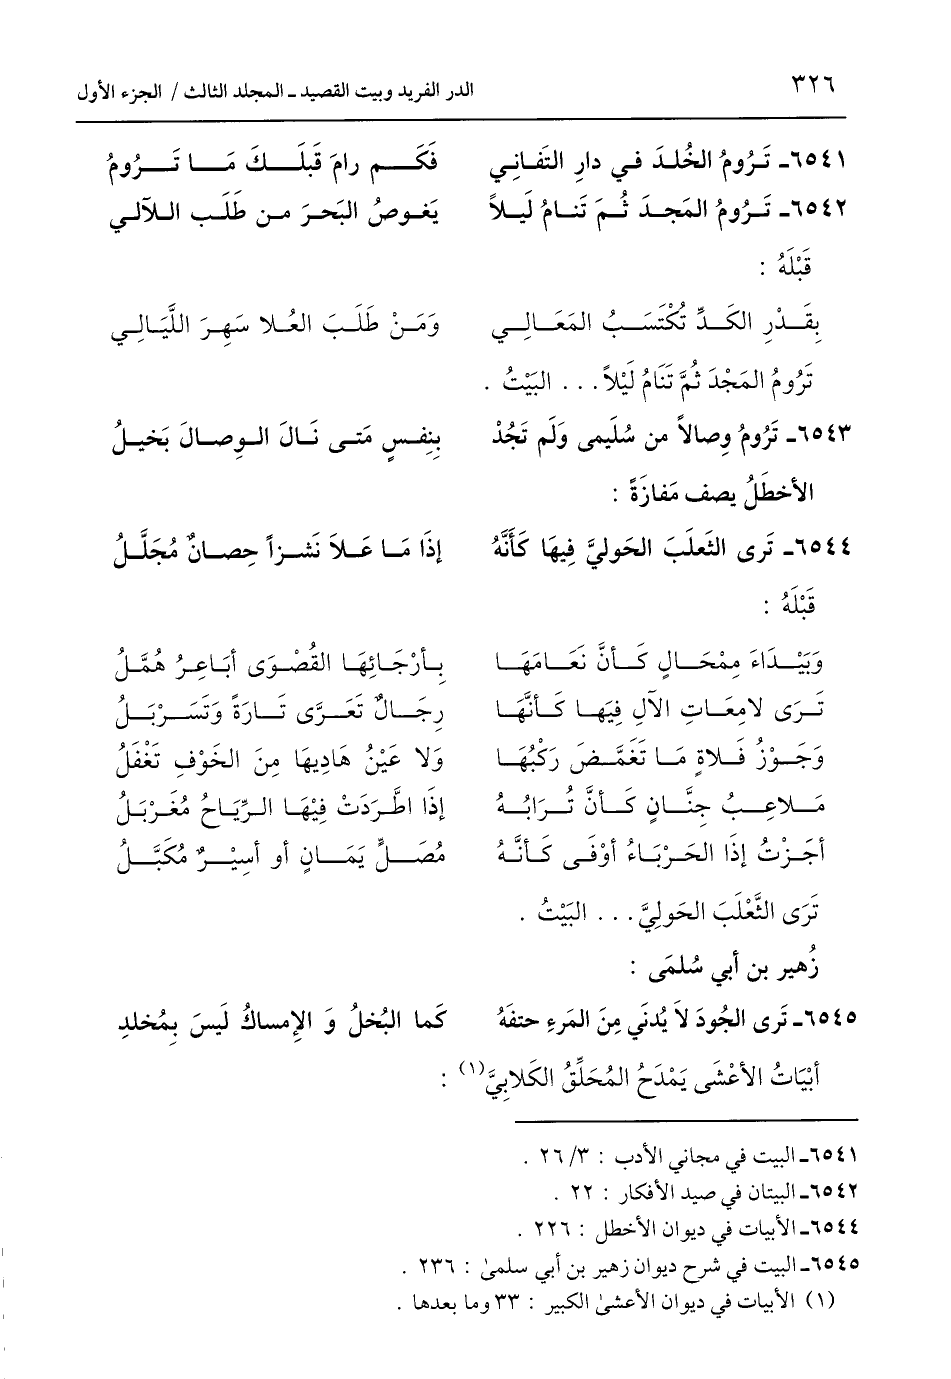 ٣٢٦ الدر الفريد وبيت القصيد ـ المجلد الثالث / الجزء الأول
٦٥٤١ـ تَرُومُ الخُلدَ في دارِ التَفاني فَكَم رامَ قَبلَكَ مَا تَرُومُ
٦٥٤٢ـ تَرُومُ المَجدَ ثُمَ تَنامُ لَيلاً يَغوصُ البَحرَ من طَلَب اللآلي
قَبْلَهُ :
بِقَدْرِ الكَدِّ تُكْتَسَبُ المَعَالِي وَمَنْ طَلَبَ العُلا سَهِرَ اللَّيَالِي
تَرُومُ المَجْدَ ثُمَّ تَنَامُ لَيْلاً. . . البَيْتُ .
٦٥٤٣ـ تَرُومُ وِصالاً من سُلَيمى وَلَم تَجُدْ بِنِفسٍ مَتى نَالَ الوِصالَ بَخيلُ
الأخطَلُ يصف مَفازَةً :
٦٥٤٤ـ تَرى الثَعلَبَ الحَوليَّ فِيهَا كَأَنَّهُ إذَا مَا عَلاَ نَشزاً حِصانٌ مُجَلَّلُ
قَبْلَهُ :
وَبَيْدَاءَ مِمْحَالٍ كَأنَّ نَعَامَهَا بِأرْجَائِهَا القُصْوَى أبَاعِرُ هُمَّلُ
تَرَى لامِعَاتِ الآلِ فِيهَا كَأنَّهَا رِجَالٌ تَعَرَّى تَارَةً وَتَسَرْبَلُ
وَجَوْزُ فَلاةٍ مَا تَغَمَّضَ رَكْبُهَا وَلا عَيْنُ هَادِيهَا مِنَ الخَوْفِ تَغْفَلُ
مَلاعِبُ جِنَّانٍ كَأنَّ تُرَابَهُ إذَا اطَّرَدَتْ فِيْهَا الرِّيَاحُ مُغَرْبَلُ
أجَزْتُ إذَا الحَرْبَاءُ أوْفَى كَأنَّهُ مُصَلٍّ يَمَانٍ أو أسِيْرٌ مُكَبَّلُ
تَرَى الثَّعْلَبَ الحَولِيَّ. . . البَيْتُ .
زُهير بن أبي سُلمَى :
٦٥٤٥ـ تَرى الجُودَ لاَ يُدنَي مِنَ المَرءِ حتفَهُ كَما البُخلُ وَ الإِمساكُ لَيسَ بِمُخلدِ
أبْيَاتُ الأعْشَى يَمْدَحُ المُحَلِّقُ الكَلابِيَّ(١) :
٦٥٤١ـ البيت في مجاني الأدب : ٣/ ٢٦ .
٦٥٤٢ـ البيتان في صيد الأفكار : ٢٢ .
٦٥٤٤ـ الأبيات في ديوان الأخطل : ٢٢٦ .
٦٥٤٥ـ البيت في شرح ديوان زهير بن أبي سلمىٰ : ٢٣٦ .
(١) الأبيات في ديوان الأعشىٰ الكبير : ٣٣ وما بعدها .